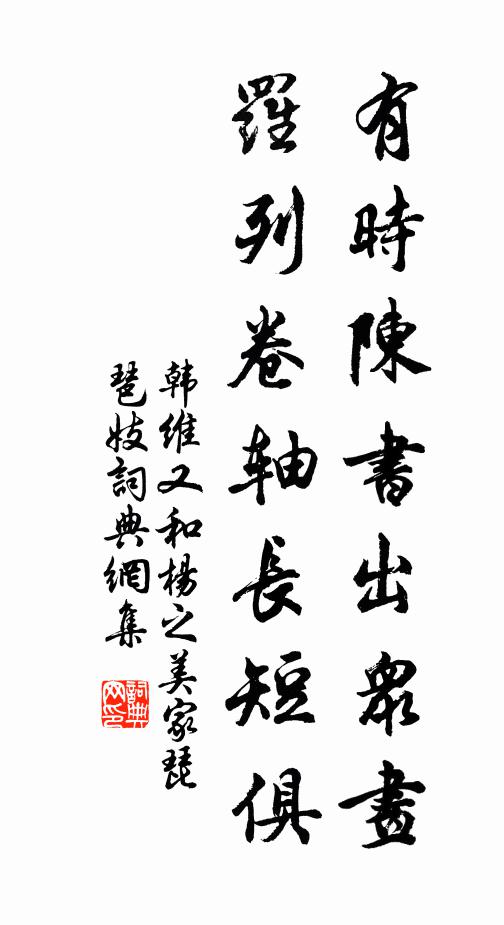 有時陳書出衆畫
羅列卷轴長短俱
韩维又和楊之美家琵
琶妓詞典網集
詞典
网印